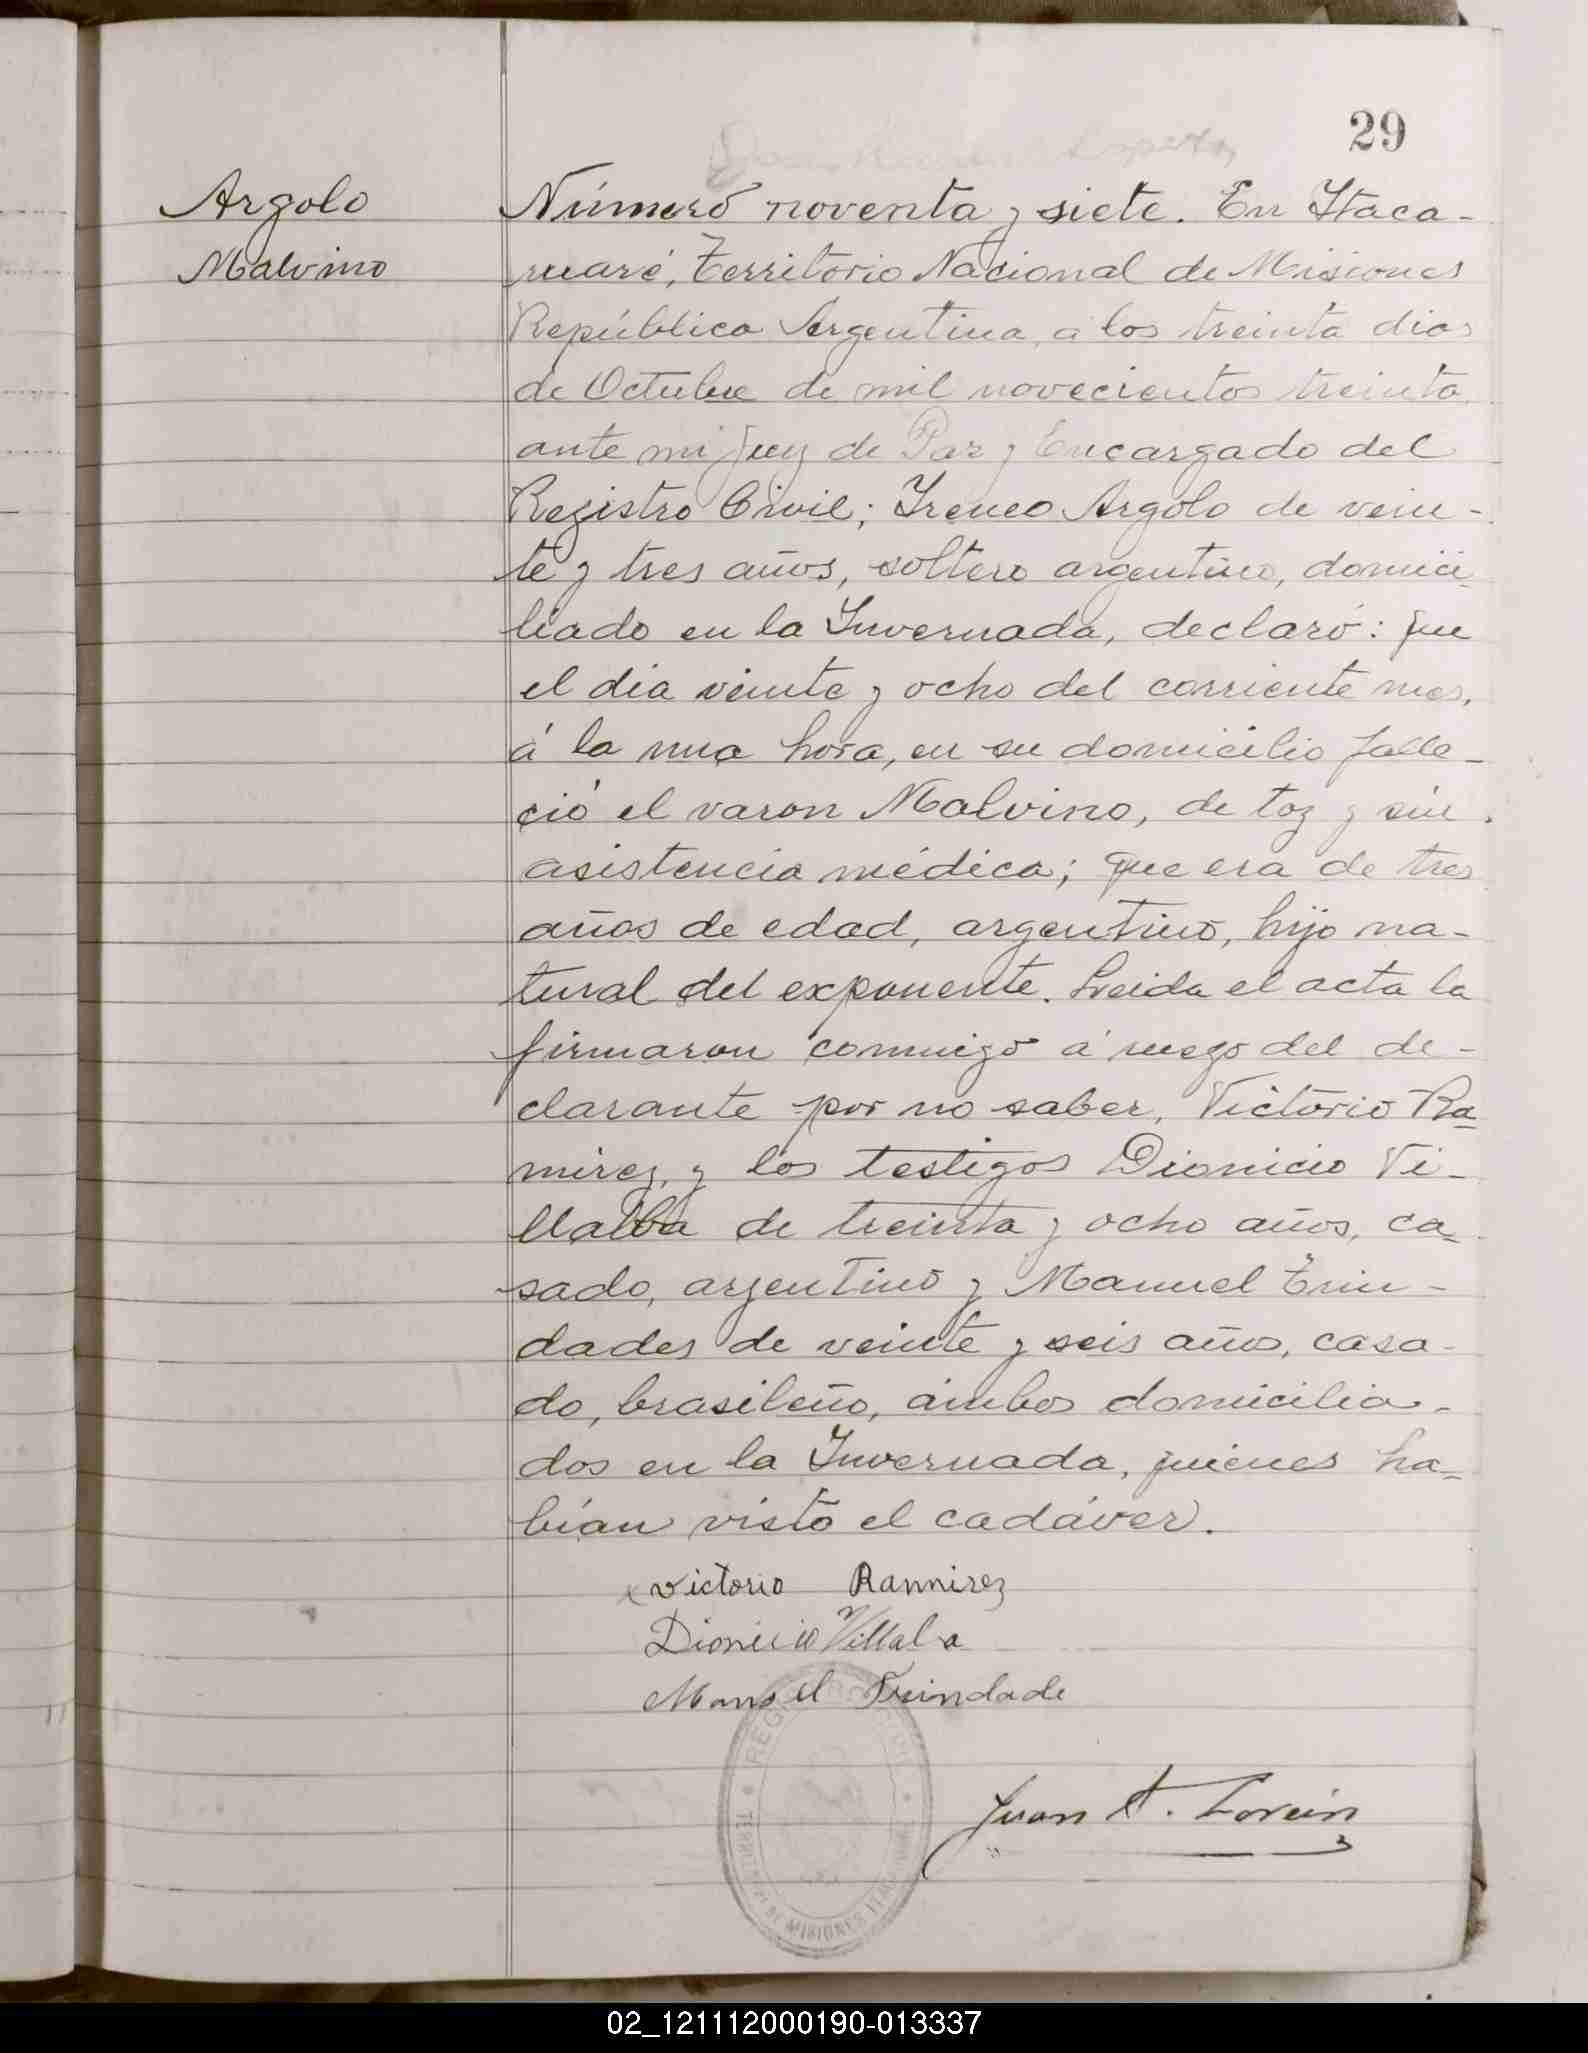 29
Argolo
Malvino
Número noventa y siete. En Itaca-
ruaré, Territorio Nacional de Misiones
República Argentina, á los treinta dias
de Octubre de mil novecientos treinta,
ante mi Juez de Paz y Encargado del
Registro Civil; Ireneo Argolo de vein-
te y tres años, soltero argentino, domici
liado en la Invernada, declaró: que
el dia veinte y ocho del corriente mes,
á la una hora, en su domicilio falle-
ció el varon Malvino, de toz y sin
asistencia médica; que era de tres
años de edad, argentino, hijo na-
tural del exponente. Leida el acta la
firmaron conmigo á ruego del de-
clarante por no saber, Victorio Ra-
mirez, y los testigos Dionicio Vi-
llalba de treinta y ocho años, ca-
sado, argentino y Manuel Trin-
dades de veinte y seis años, casa-
do, brasileño, ámbos domicilia-
dos en la Invernada, quienes ha-
bían visto el cadáver.
Victorio Ramirez
Dionicio Villalva
Manuel Trindade
REGISTRO CIVIL
TERRITORIO DE MISIONES
Juan A.
02_121112000190-013337